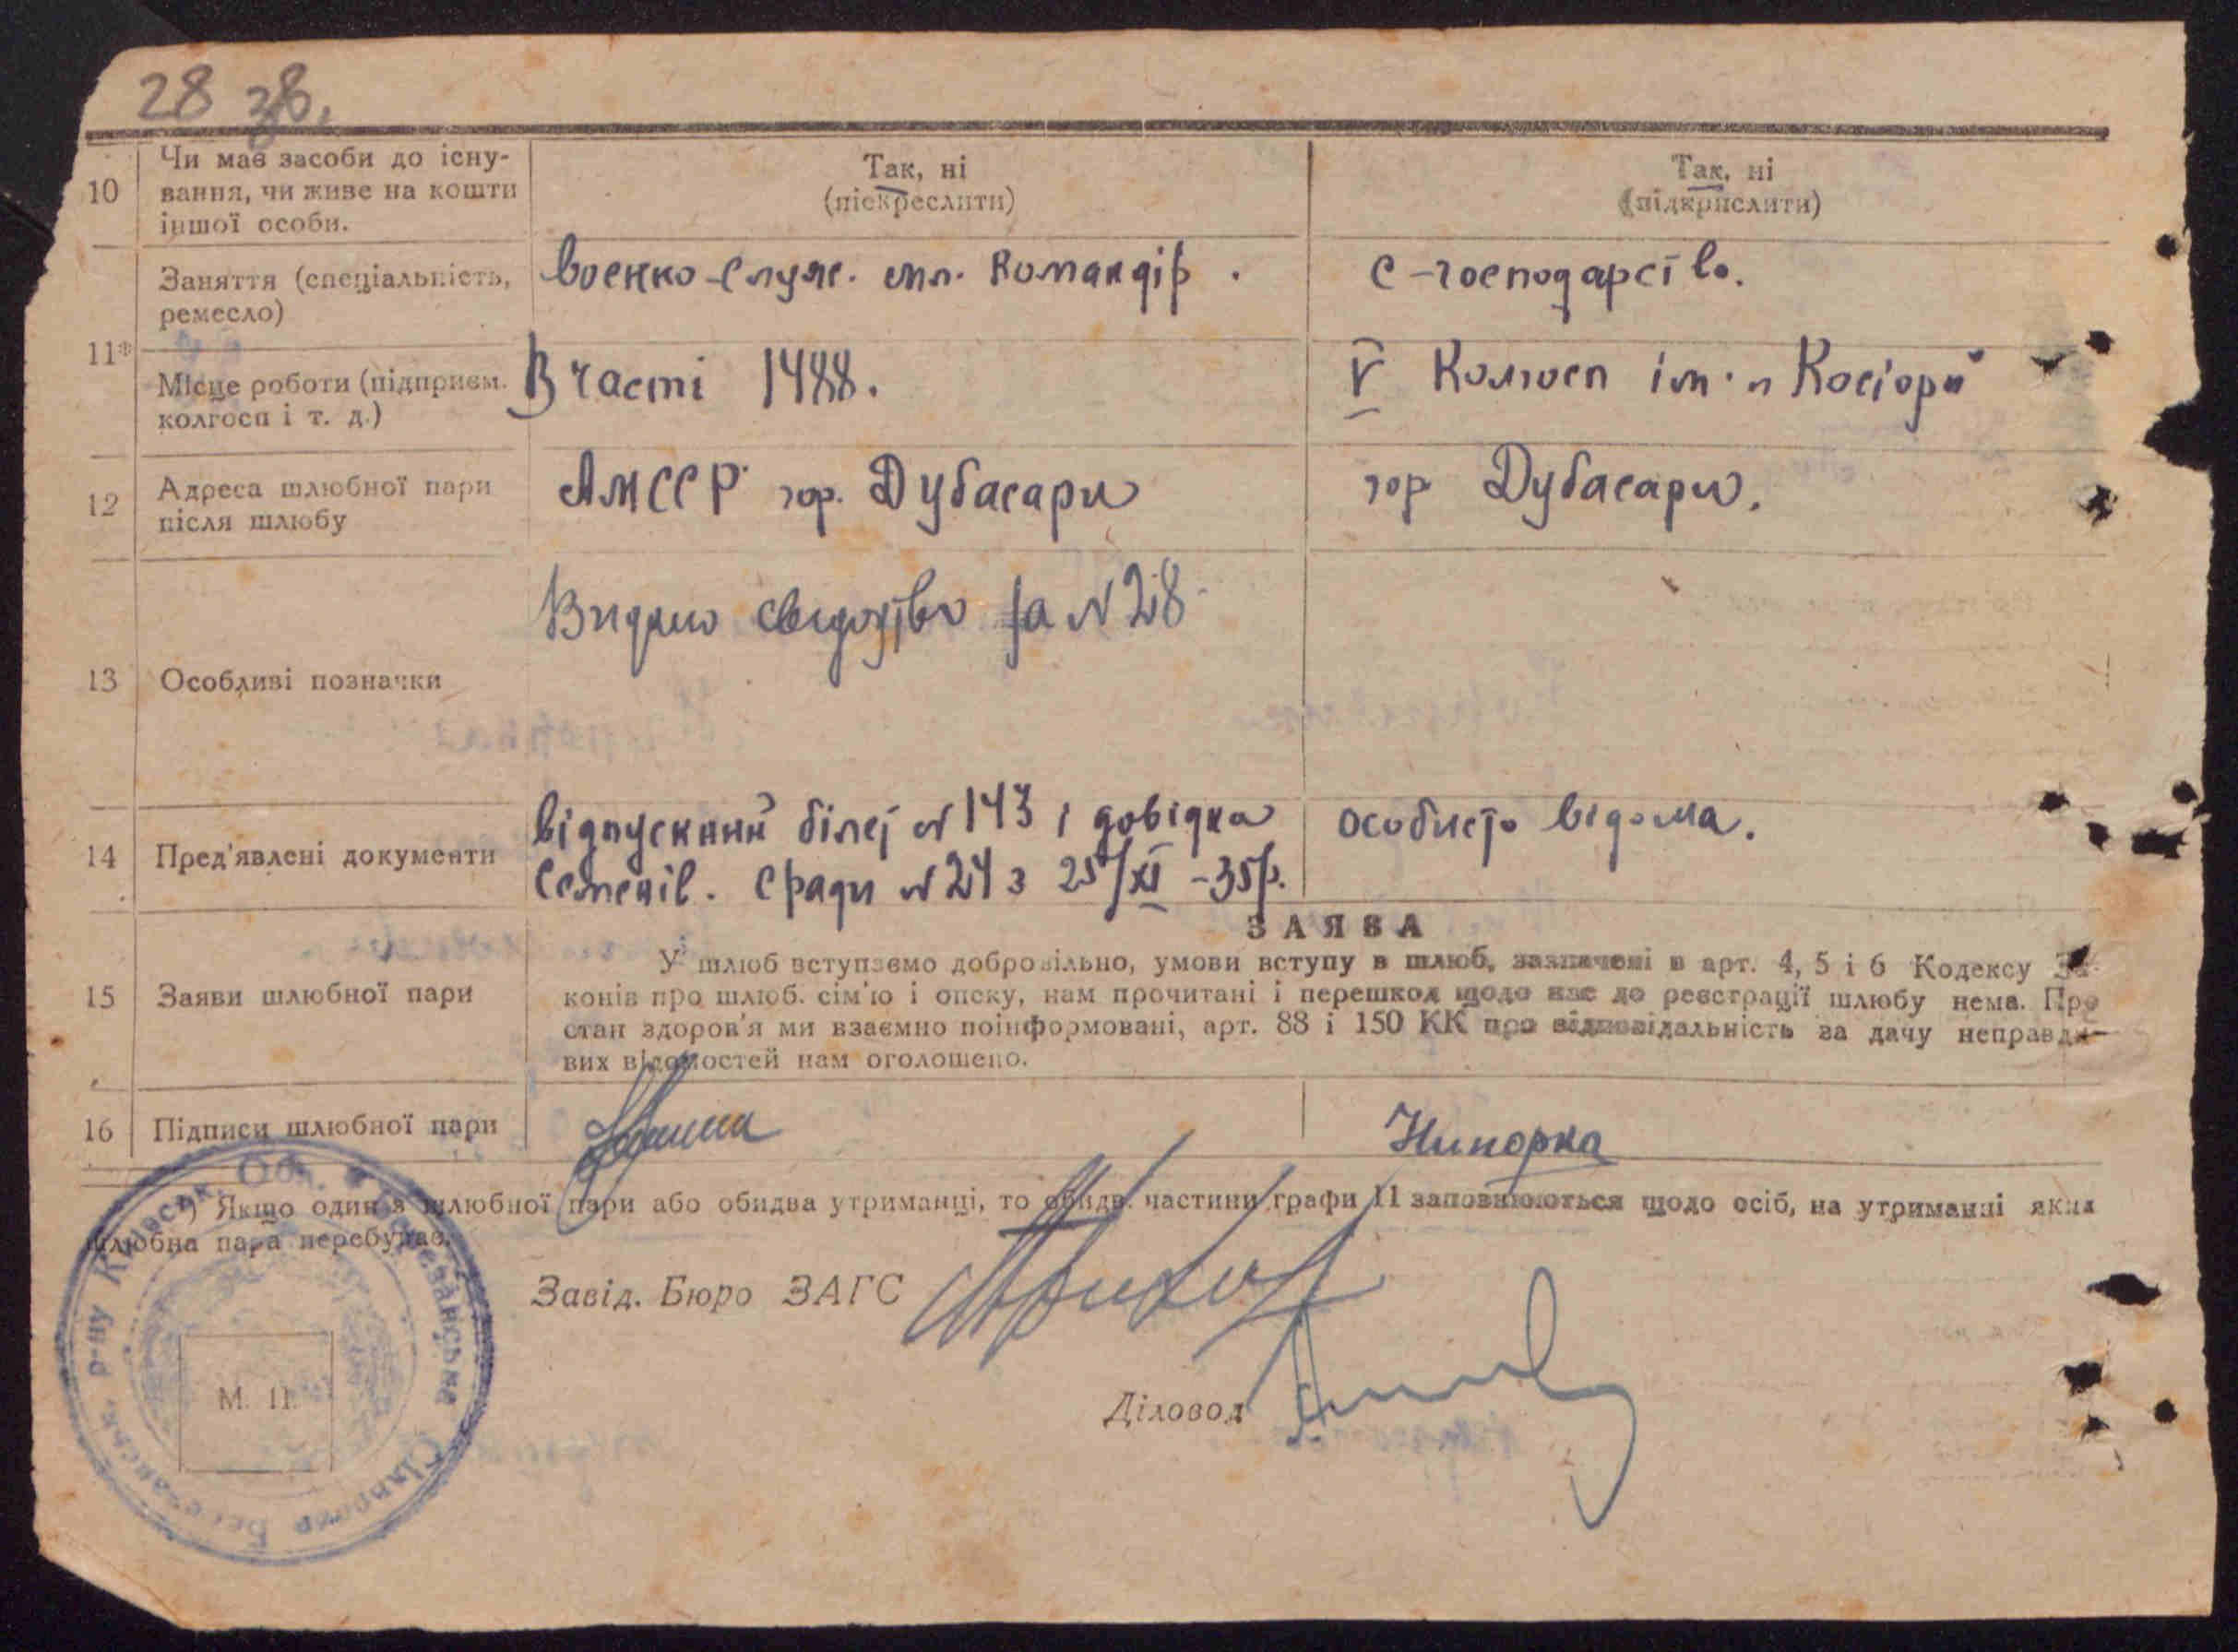 28 38.
10 Чи має засоби до існу-
вання, чи живе на кошти
іншої особи.
Так, ні
(піскреслити)
Так, ні
(підкрислити)
11*
Заняття (спеціальність,
ремесло)
воєнко-служ. мл. Командір.
с-господарстві.
Місце роботи (підприєм.
колгосп і т. д.)
В часті 1488.
V Колгосп ім. "Косіора"
12 Адреса шлюбної пари
після шлюбу
АМССР гор. Дубасари
гор Дубасари.
13 Особливі позначки
Видано свидотво за №28
14 Пред'явлені документи
відпускний білет №143 і довідка
Семенів. сради №24 з 25/XI-35р.
особисто відома.
15 Заяви шлюбної пари
ЗАЯВА
У шлюб вступаємо добровільно, умови вступу в шлюб, зазначені в арт. 4, 5 і 6 Кодексу За-
конів про шлюб. сім'ю і опеку, нам прочитані і перешкод щодо нас до реєстрації шлюбу нема. Про
стан здоров'я ми взаємно поінформовані, арт. 88 і 150 КК про відповідальність за дачу неправди-
вих відомостей нам оголошено.
16 Підписи шлюбної пари
Нипорка
*) Якщо один з шлюбної пари або обидва утриманці, то обидв. частини графи 11 заповнюються щодо осіб, на утриманні яких
шлюбна пара перебуває.
Завід. Бюро ЗАГС
Діловод
М. П.
Березанськ. р-ну Київськ. Обл.
Березанська Сільрада